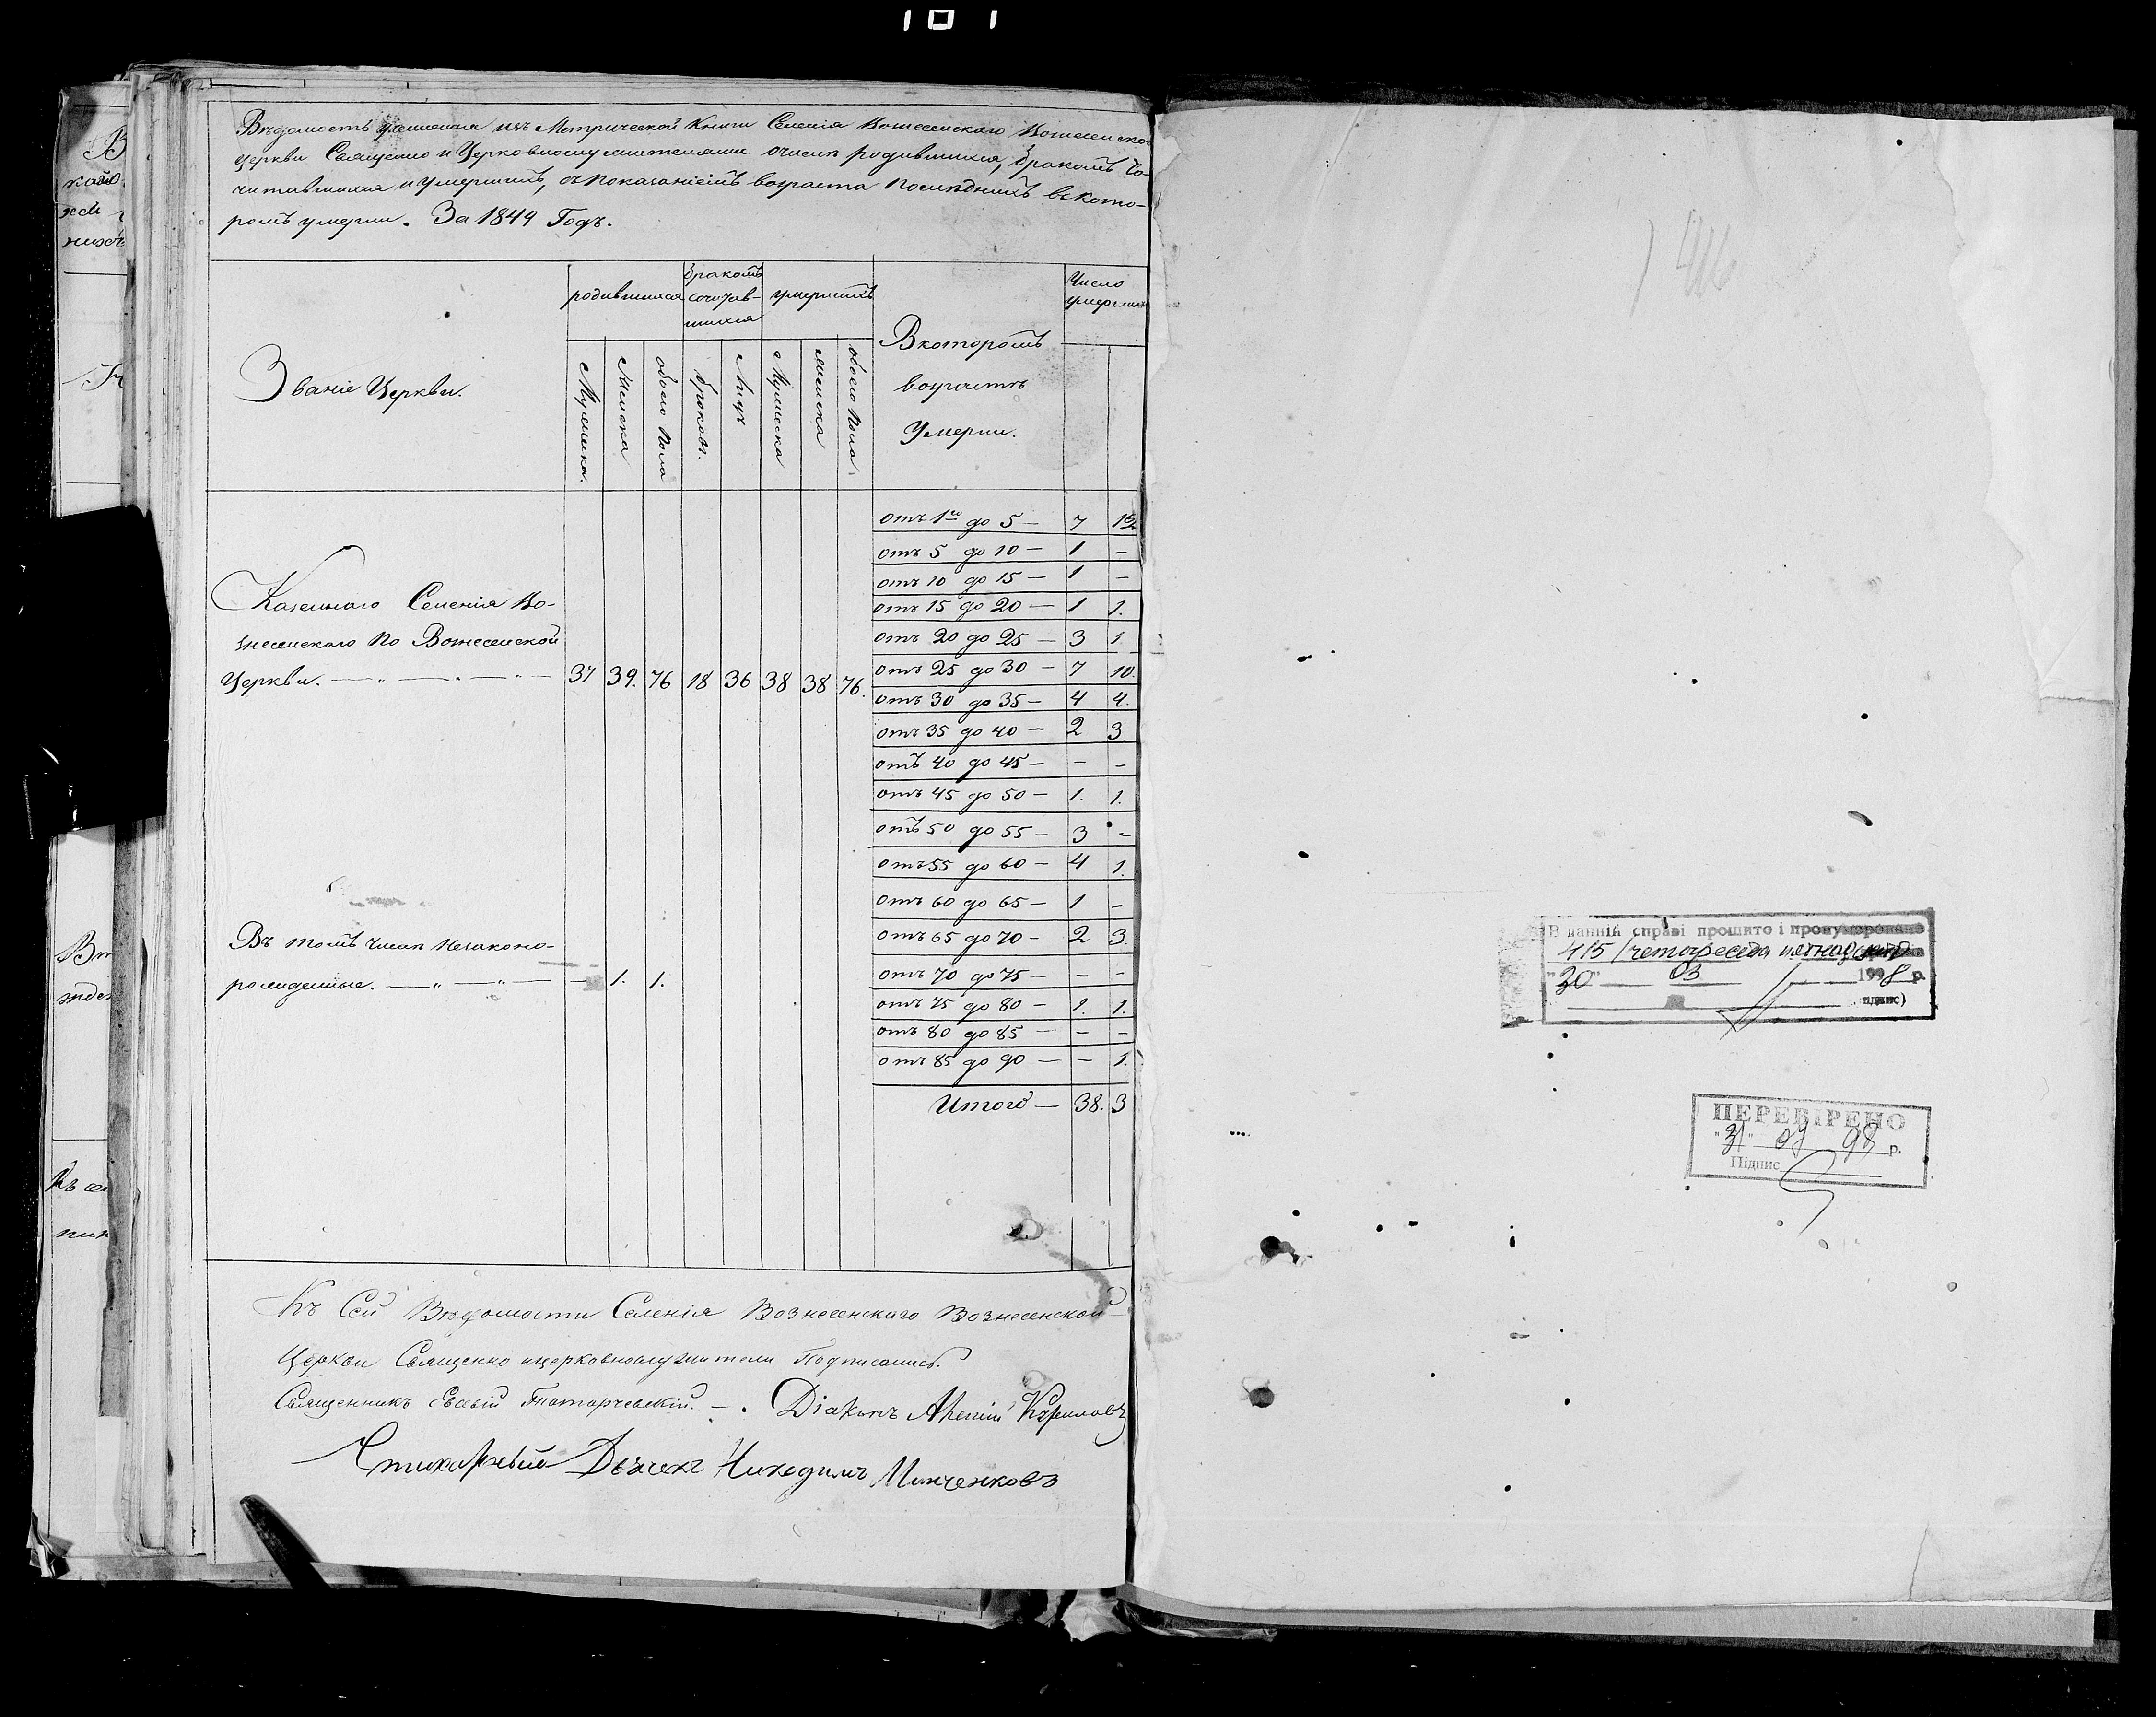 101
Вѣдомость учиненная изъ Метрической Книги Селенія Вознесенскаго Вознесенской
Церкви Священно и Церковнослужителями о числѣ родившихся, бракомъ Со-
читавшихся и умершихъ, съ показаніемъ возраста послѣднихъ въ кото-
ромъ умерли. За 1849 Годъ.
Званіе Церкви.
родившихся
бракомъ
сочетав-
шихся
умершихъ
Въ которомъ
возрастѣ
Умерли.
Число
умершихъ
Мужеска.
Женска
обоего пола
браковъ.
Лицъ
Мужеска
женска
обоего пола
Казеннаго Селенія Во-
знесенскаго по Вознесенской
Церкви. 37 39. 76 18 36 38 38 76.
Въ томъ числѣ незаконо-
рожденные. — 1. 1.
отъ 1го до 5 — 7 12
отъ 5 до 10 — 1 —
отъ 10 до 15 — 1 —
отъ 15 до 20 — 1 1.
отъ 20 до 25 — 3 1
отъ 25 до 30 — 7 10.
отъ 30 до 35 — 4 4.
отъ 35 до 40 — 2 3.
отъ 40 до 45 — — —
отъ 45 до 50 — 1. 1.
отъ 50 до 55 — 3 —
отъ 55 до 60 — 4 1.
отъ 60 до 65 — 1 —
отъ 65 до 70 — 2 3.
отъ 70 до 75 — — —
отъ 75 до 80 — 1. 1.
отъ 80 до 85 — — —
отъ 85 до 90 — — 1.
Итого — 38. 3
Къ Сей Вѣдомости Селенія Вознесенскаго Вознесенской
Церкви Священно и церковнослужители Подписались.
Священникъ Татарчевскій. Діаконъ Кириловъ
Дьячекъ Никодимъ Минченковъ
В данній справі прошито і пронумеровано
415 /чотиреста пятнадцять
"30" 03 1998 р.
підпис)
ПЕРЕВІРЕНО
"31" 03 98 р.
Підпис